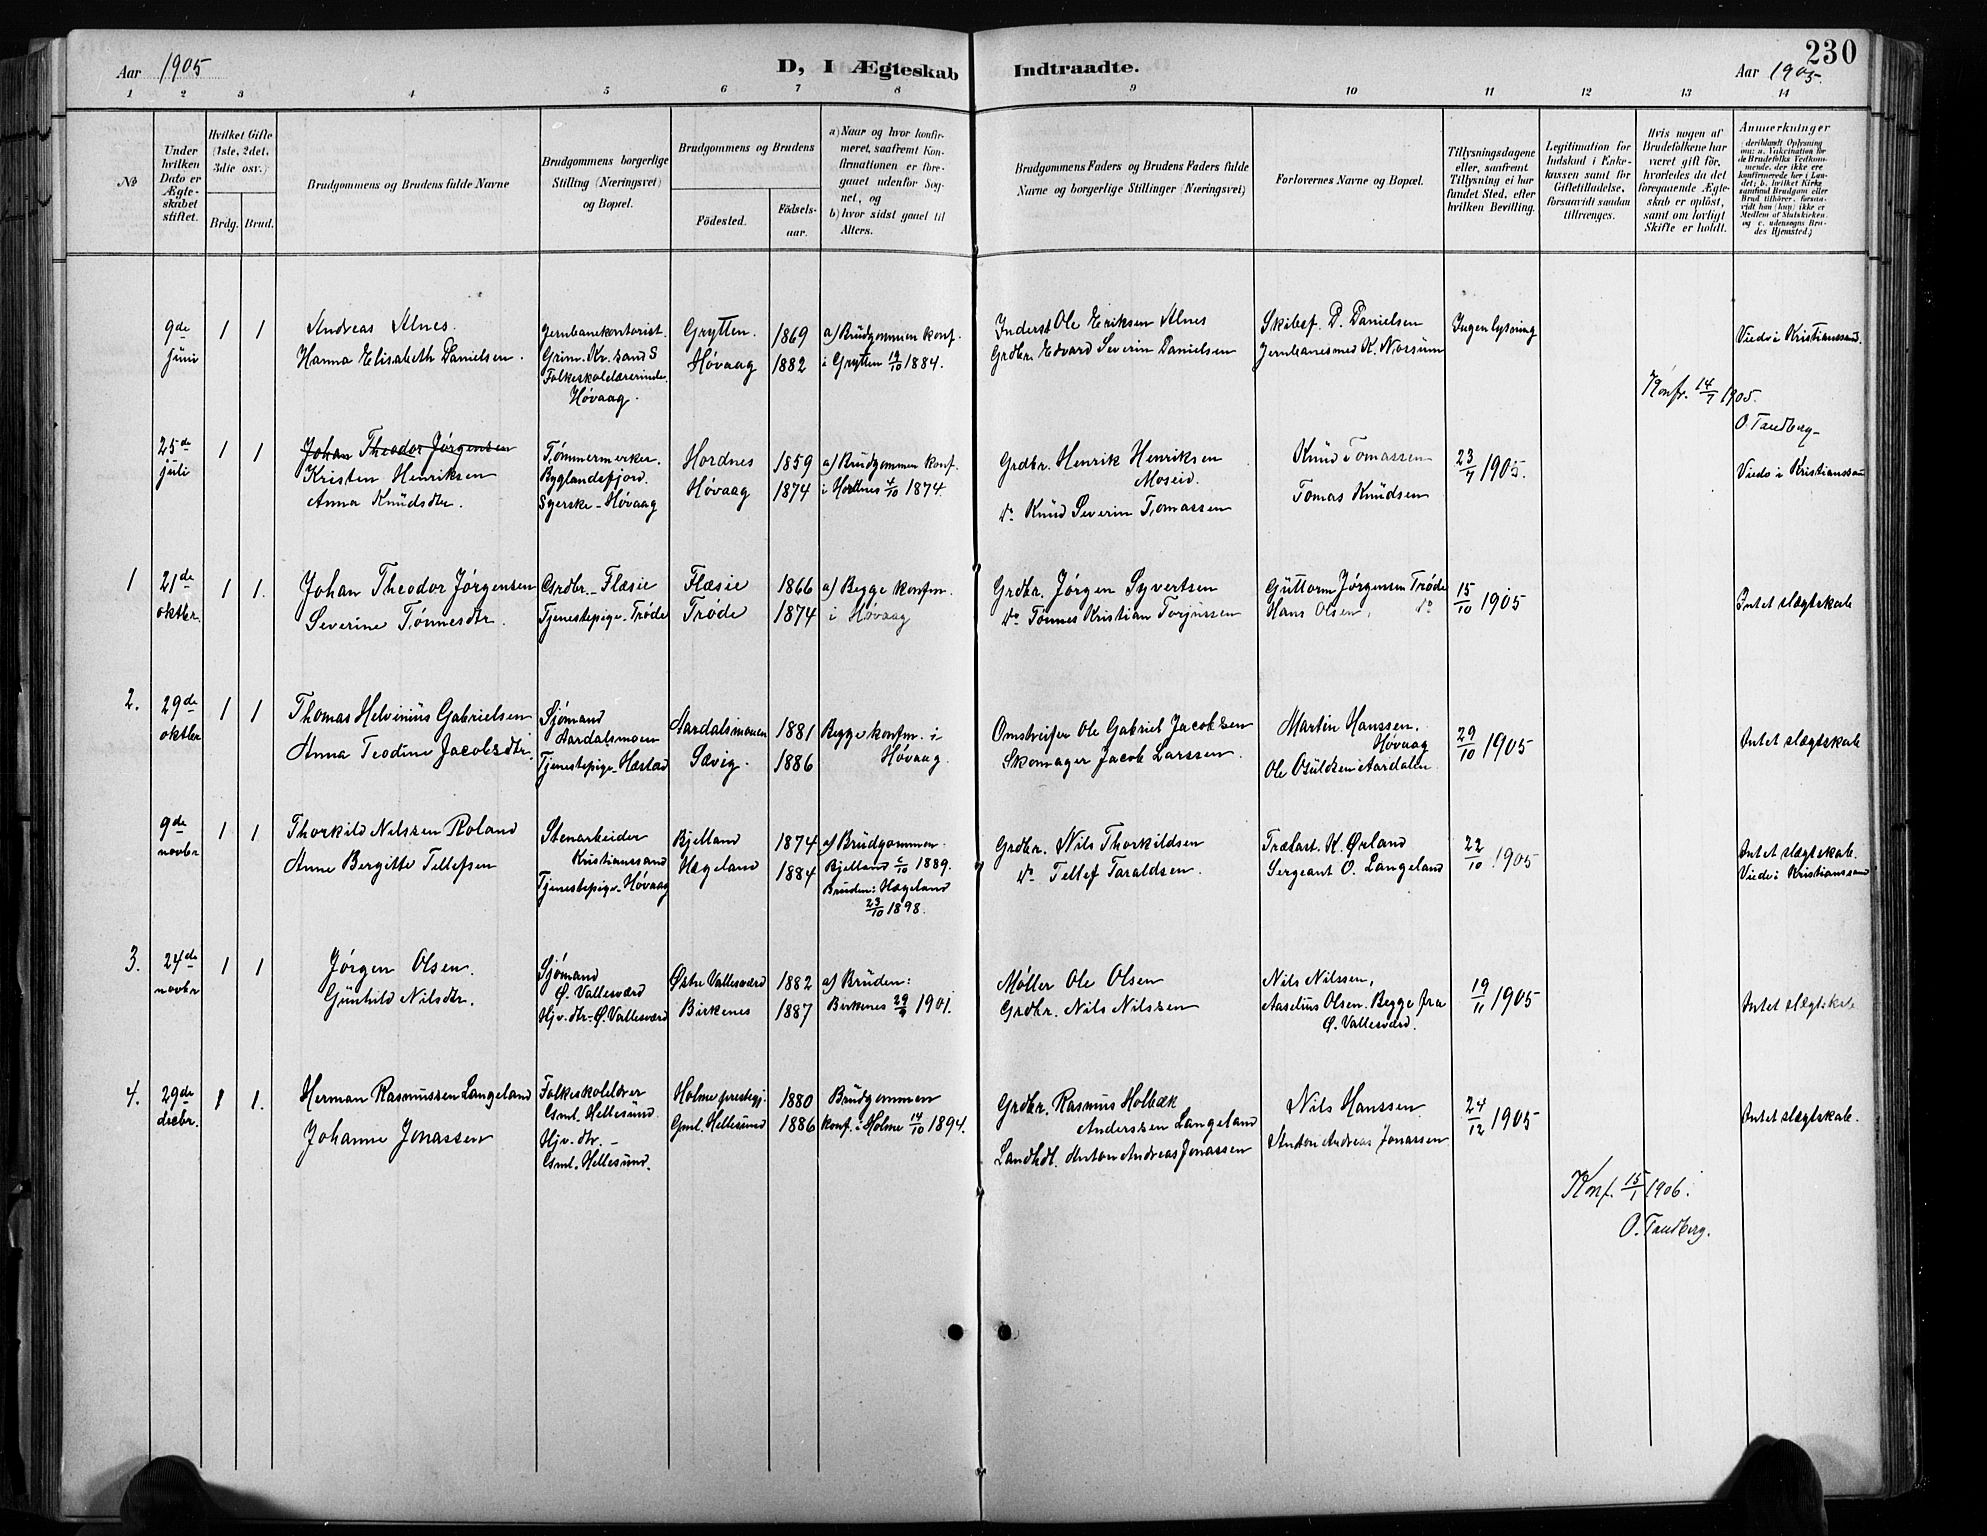 230
Aar 1905
D, I Ægteskab Indtraadte.
Aar 1905.
1 2 3 4 5 6 7 8 9 10 11 12 13 14
No
Under hvilken Dato er Ægteskabet stiftet.
Hvilket Gifte (1ste, 2det, 3die osv.)
Brdg. Brud.
Brudgommens og Brudens fulde Navne
Brudgommens borgerlige Stilling (Næringsvei) og Bopæl.
Brudgommens og Brudens
Födested.
Födselsaar.
a) Naar og hvor konfirmeret, saafremt Konfirmationen er foregaaet udenfor Sognet, og
b) hvor sidst gaaet til Alters.
Brudgommens Faders og Brudens Faders fulde Navne og borgerlige Stillinger (Næringsvei)
Forlovernes Navne og Bopæl.
Tillysningsdagene eller, saafremt Tillysning ei har fundet Sted, efter hvilken Bevilling.
Legitimation for Indskud i Enkekassen samt for Giftetilladelse, forsaavidt saadan tiltrænges.
Hvis nogen af Brudefolkene har været gift för, hvorledes da det foregaaende Ægteskab er oplöst, samt om lovligt Skifte er holdt.
Anmerkninger
(deriblandt Oplysning om: a. Vakcination for de Brudefolks Vedkommende, der ikke ere konfirmerede her i Landet; b. hvilket Kirkesamfund Brudgom eller Brud tilhörer, forsaavidt han (hun) ikke er Medlem af Statskirken, og c. udensogns Brudes Hjemsted.)
9de juni
1 1
Andreas Alnes.
Hanna Elisabeth Danielsen.
Jernbanekontorist.
Grim. Kr.sand S
Folkeskolelærerinde
Høvaag.
Grytten. 1869
Høvaag 1882
a) Brudgommen konf.
i Grytten 19/10 1884.
Inderst Ole Eriksen Alnes
Grdbr. Edvard Severin Danielsen
Skibsf. D. Danielsen
Jernbanesmed K. Norsum
Ingen lysning
Viede i Kristianssand.
Konfr. 14/7 1905.
O. Tandberg
25de juli
1 1
Johan Theodor Jørgensen
Kristen Henriksen
Anna Knudsdtr.
Tømmermerker.
Byglandsfjord.
Syerske - Høvaag
Hordnes 1859
Høvaag 1874
a) Brudgommen konf.
i Hordnes 4/10 1874.
Grdbr. Henrik Henriksen
Moseid.
do Knud Severin Tomassen
Knud Tomassen
Tomas Knudsen
23/7 1905.
Viede i Kristianssand
1
21de oktbr.
1 1.
Johan Theodor Jørgensen
Severine Tønnesdtr.
Grdbr. - Flæsie
Tjenestepige - Trøde
Flæsie 1866
Trøde 1874
a) Begge konfm.
i Høvaag
Grdbr. Jørgen Syvertsen
do Tønnes Kristian Torjussen
Guttorm Jørgensen Trøde
Hans Olsen, do
15/10 1905
Intet slægtskab
2.
29de oktbr
1 1
Thomas Helvinius Gabrielsen
Anna Teodine Jacobsdtr.
Sjømand
Aardalsmoen
Tjenestepige - Hæstad
Aardalsmoen 1881
Sævig. 1886
Begge konfm. i
Høvaag.
Omstreifer Ole Gabriel Jacobsen
Skomager Jacob Larssen.
Martin Hanssen.
Høvaag
Ole Osuldsen Aardalen
29/10 1905
Intet slægtskab
9de novbr
1 1
Thorkild Nilssen Roland
Anne Bergitte Tellefsen
Stenarbeider
Kristianssand
Tjenestepige - Høvaag
Bjelland 1874
Hægeland 1884
a) Brudgommen.
Bjelland 6/10 1889.
Bruden: Hægeland
23/10 1898.
Grdbr. Nils Thorkildsen
do Tellef Taraldsen.
K. Ørland
Sergeant O. Langeland
22/10 1905
Intet slægtskab.
Viede i Kristianssand
3.
24de novbr
1 1
Jørgen Olsen.
Gunhild Nilsdtr.
Sjømand
Ø. Vallesværd
Hjv. dtr - Ø. Vallesværd
Østre Vallesværd 1882
Birkenes 1887
a) Bruden:
Birkenes 29/9 1901.
Møller Ole Olsen
Grdbr. Nils Nilssen
Nils Nilssen,
Aaselius Olsen. Begge fra
Ø. Vallesværd.
19/11 1905
Intet slægtskab
4.
29de decbr.
1 1.
Herman Rasmussen Langeland
Johanne Jonassen
Folkeskolelærer
Gml. Hellesund.
Hjv. dtr. -
Gml. Hellesund.
Holme prestegj. 1880
Gml. Hellesund 1886
Brudgommen
konf. i Holme 14/10 1894.
Grdbr. Rasmus Holbæk
Anderssen Langeland
Landhdl. Anton Andreas Jonassen
Nils Hanssen
Anton Andreas Jonassen
24/12 1905
Intet slægtskab.
Konf. 15/1 1906.
O. Tandberg.